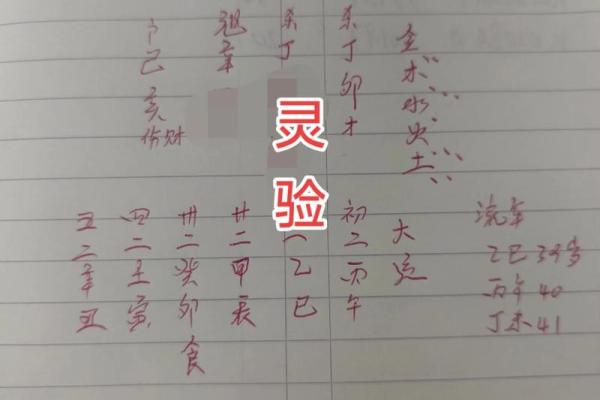 金木水火土
杀丁卯才
杀丁
辛
己亥伤财
灵
验
大运
初二丙午
一乙巳
廿二甲辰
卅二癸卯食
四二壬寅
五二辛丑
流年
乙巳39岁
丙午40
丁未41